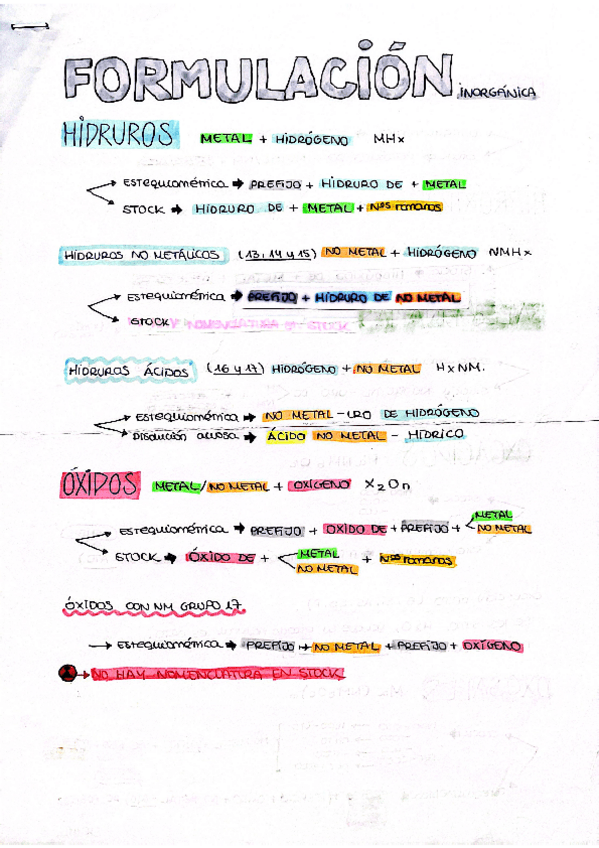 FORMULACIÓN INORGÁNICA
HIDRUROS METAL + HIDRÓGENO MHx
ESTEQUIOMÉTRICA → PREFIJO + HIDRURO DE + METAL
STOCK → HIDRURO DE + METAL + Nºs romanos
HIDRUROS NO METÁLICOS (13, 14 y 15) NO METAL + HIDRÓGENO NMHx
ESTEQUIOMÉTRICA → PREFIJO + HIDRURO DE NO METAL
STOCK
HIDRUROS ÁCIDOS (16 y 17) HIDRÓGENO + NO METAL HxNM.
ESTEQUIOMÉTRICA → NO METAL - URO DE HIDRÓGENO
DISOLUCIÓN ACUOSA → ÁCIDO NO METAL - HÍDRICO
ÓXIDOS METAL/NO METAL + OXÍGENO X2On
ESTEQUIOMÉTRICA → PREFIJO + ÓXIDO DE + PREFIJO + METAL NO METAL
STOCK → ÓXIDO DE + METAL NO METAL + Nºs romanos
ÓXIDOS CON NM GRUPO 17.
→ ESTEQUIOMÉTRICA → PREFIJO + NO METAL + PREFIJO + OXÍGENO
→ NO HAY NOMENCLATURA EN STOCK